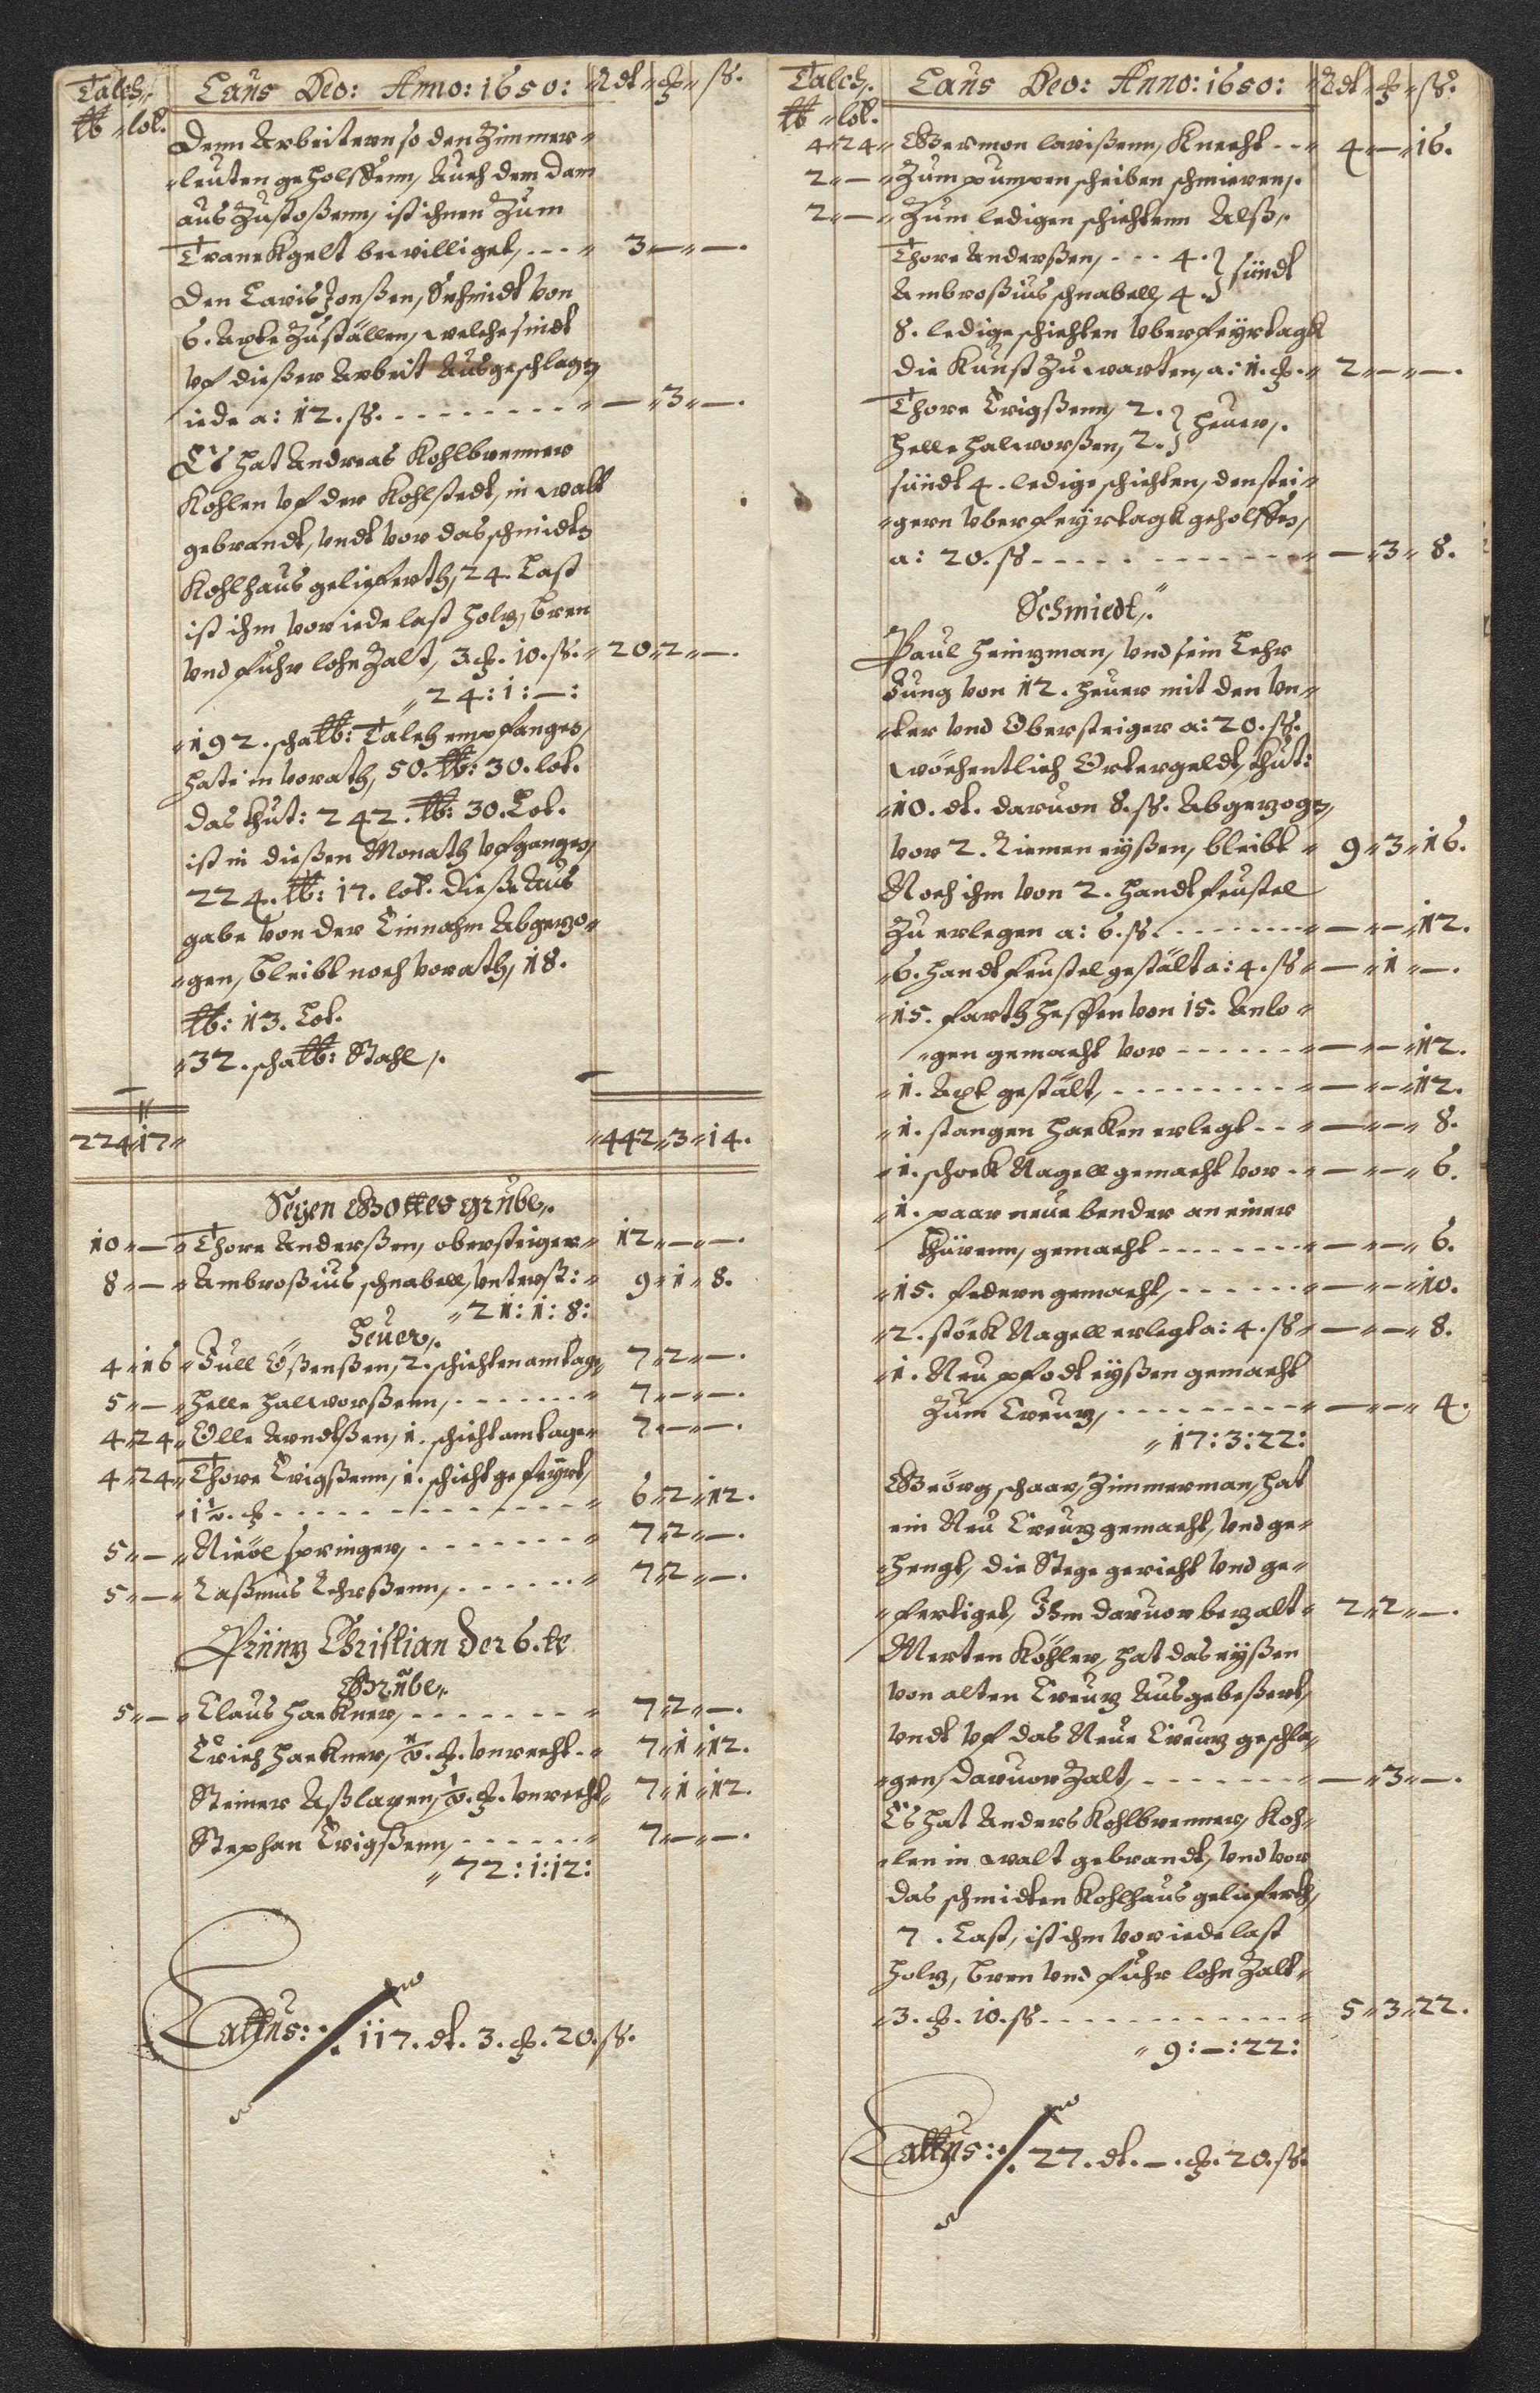 Talch,. Laus Deo: Anno: 1650: Rdt „ ȶ „ ß.
℔ „ lot.
Denn Arbeitern so den Zimmer„
„leuten geholffenn, Auch dem dam
aus Zustoßenn, ist ihnen Zum
Tranckgelt bewilliget, - - - „ 3 „ — „ —.
Den Laris Jonßen, Schmidt von
6. Axte Zuställen, welche sindt
vf dießer Arbeit Ausgeschlagen
iede a: 12. ß. - - - - - - - - - „ — „ 3 „ —.
Es hat Andreas Kohlbrenner
Kohlen vf der Kohlstedt, in walt
gebrandt, vndt vor das schmidts
Kohlhaus gelieferth, 24. Last
ist ihm vor iede last holz, bren
vnd fuhr lohn Zalt, 3. ȶ. 10. ß. „ 20 „ 2 „ —.
„ 24 : 1 : — :
„192. scha℔: Talch empfangen,
hate in vorath, 50. ℔: 30. lot.
das thut: 242. ℔: 30. Lot.
ist in dießen Monath vfgangen,
224. ℔: 17. lot. Dieße Aus
gabe von der Einnahm Abgezo„
„gen, bleibt noch vorath, 18.
℔: 13. Lot.
„32. scha℔: Stahl,.
224 „ 17 „ „ 442 „ 3 „ 14.
Segen Gottes grube,.
10 „ — „ Thore Anderßen, obersteiger „ 12 „ — „ —.
8 „ — „ Ambroßius schnabell, vnterst: „ 9 „ 1 „ 8.
„ 21 : 1 : 8 :
Heuer,.
4 „ 16 „ Jull Ößenßen, 2. schichten am tage, 7 „ 2 „ —.
5 „ — „ Helle Halvorßenn, - - - - - - - „ 7 „ — „ —.
4 „ 24 „ Olle Arndtßen, 1. schicht am tage „ 7 „ — „ —.
4 „ 24 „ Thore Erigßenn, 1. schicht gefeyrt,
1½. ȶ - - - - - - - - - - - - - „ 6 „ 2 „ 12.
5 „ — „ Nicöl springer, - - - - - - - „ 7 „ 2 „ —.
5 „ — „ Raßmus Lehrßenn, - - - - - - „ 7 „ 2 „ —.
Prinz Christian der 6. te
Grube,.
5 „ — „ Claus Hackner, - - - - - - - „ 7 „ 2 „ —.
Erich Hackner, ½. ȶ. vnrecht - „ 7 „ 1 „ 12.
Steiner Aßlaxen, ½. ȶ. vnrecht „ 7 „ 1 „ 12.
Stephan Erigßenn, - - - - - - „ 7 „ — „ —.
„ 72 : 1 : 12 :
Lattus: ./. 117. dt. 3. ȶ. 20. ß.
Talch,. Laus Deo: Anno: 1650: „ Rdt „ ȶ „ ß.
℔ „ lot.
4 „ 24 „ Germon larißenn, Knecht - - „ 4 „ — „ 16.
2 „ — „ Zum pumpen scheiben schmieren,.
2 „ — „ Zum ledigen schichtenn Alß,.
Thore Anderßen, - - - 4. } sindt
Ambroßius schnabell, 4. }
8. ledige schichten vber feyrtagk
die Kunst Zu warten, a: 1. ȶ. „ 2 „ — „ —.
Thore Erigßenn, 2. } Heuer,.
Helle Halworßen, 2. }
sindt 4. ledige schichten, den stei„
„gern vber feyrtagk geholffen,
a: 20. ß - - - - - - - - - - - - „ — „ 3 „ 8.
Schmiedt,.
Paul Heinzman, vnd sein Lehr
Jung von 12. heuer mit den vn„
„ter vnd Obersteiger a: 20. ß.
wöchentlich Ortergeldt, thut:
„10. dt. daruon 8. ß. Abgezogen,
vor 2. Riemen eyßen, bleibt „ 9 „ 3 „ 16.
Noch ihm von 2. handtfeustel
Zu erlegen a: 6. ß. - - - - - - - - „ — „ — „ 12.
„6. handtfeustel gestält a: 4. ß „ — „ 1 „ —.
„15. farth heffen von 15. Anlo„
„gen gemacht vor - - - - - - „ — „ — „ 12.
„1. Axt gestält, - - - - - - - - - „ — „ — „ 12.
„1. stangen hacken erlegt - - „ — „ — „ 8.
„1. schock Nagell gemacht vor - „ — „ — „ 6.
„1. paar neue bender an einer
thürenn, gemacht - - - - - - - - „ — „ — „ 6.
„15. federn gemacht, - - - - - - „ — „ — „ 10.
„2. störck Nagell erlegt a: 4. ß „ — „ — „ 8.
„1. Neu pfodt eyßen gemacht
Zum Creuz, - - - - - - - - - - „ — „ — „ 4.
„ 17 : 3 : 22 :
Geörg schaar, Zimmerman, hat
ein Neu Creuz gemacht, vnd ge„
„hengt, die Stege gericht vnd ge„
„fertiget, Ihm daruor bezalt „ 2 „ 2 „ —.
Merten Köhler, hat das eyßen
von alten Creuz Ausgebeßert,
vndt vf das Neue Creuz geschla„
„gen, daruor Zalt, - - - - - - - „ — „ 3 „ —.
Es hat Anders Kohlbrenner, Koh„
„len in walt gebrandt, vnd vor
das schmidten Kohlhaus gelieferth,
7. Last, ist ihm vor iede last
holz, bren vnd fuhr lohn Zalt „
„3. ȶ. 10. ß - - - - - - - - - - - - „ 5 „ 3 „ 22.
„ 9 : — : 22 :
Lattus: ./. 27. dt. —. ȶ. 20. ß.